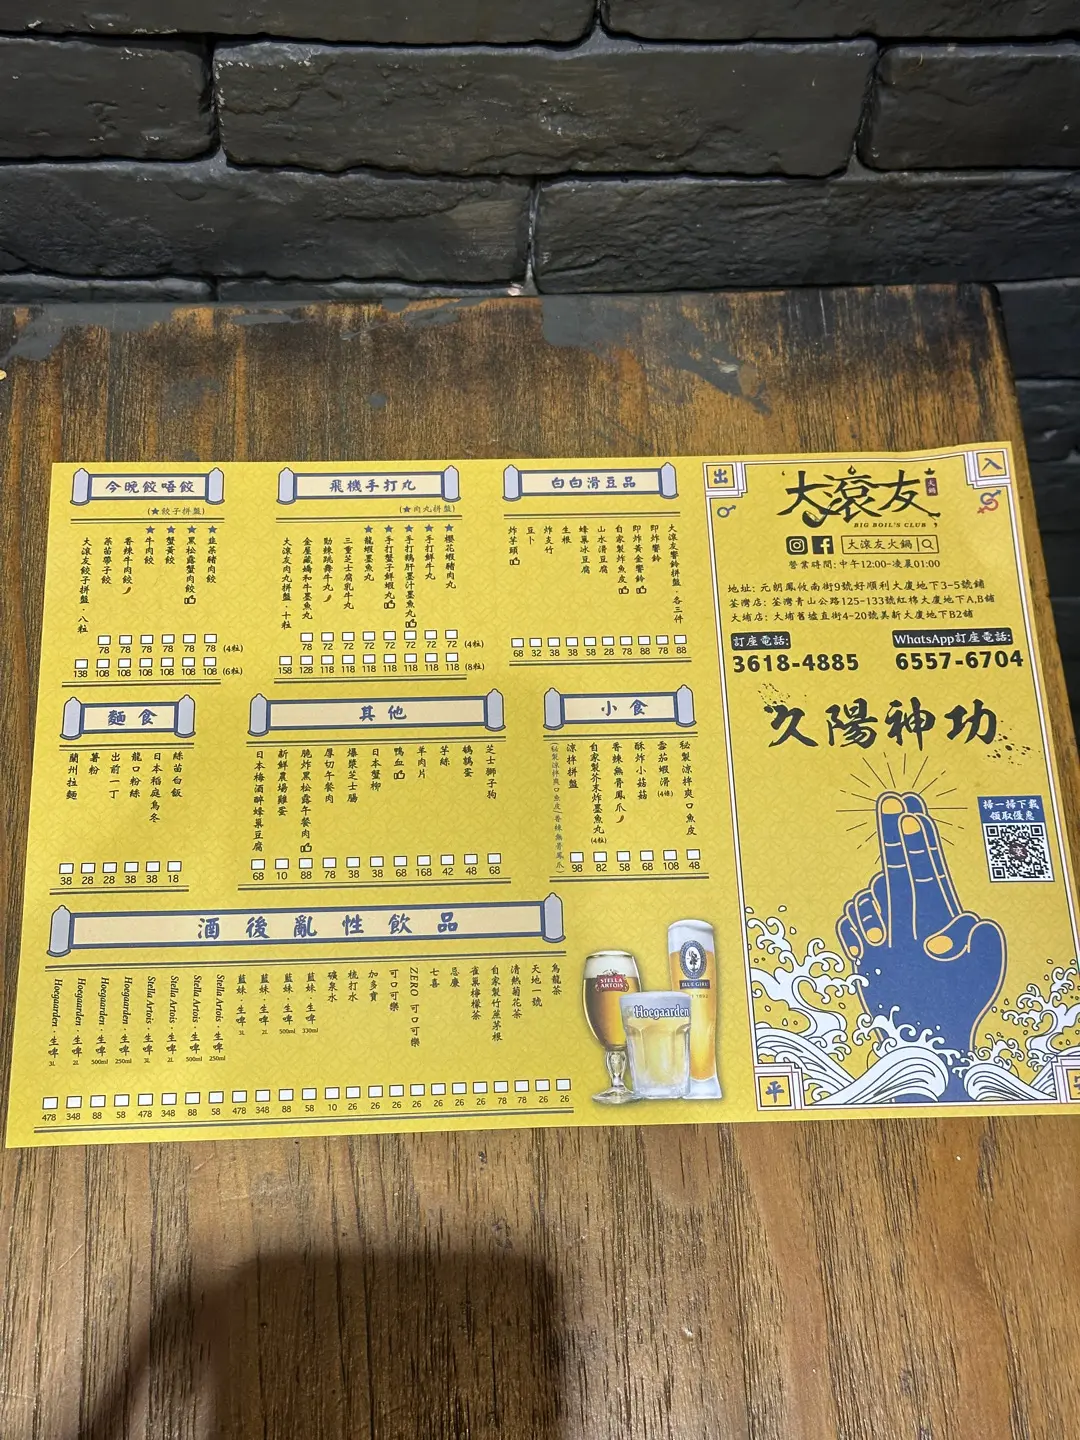 今晚餃唔餃
(★餃子拼盤)
★韮菜豬肉餃 78 108
★黑松露蟹肉餃 78 108
★蟹黃餃 78 108
★牛肉餃 78 108
香辣牛肉餃 78 108
菜苗帶子餃 78 108
大滾友餃子拼盤·八粒 138
(4粒)
(6粒)
飛機手打丸
(★肉丸拼盤)
★櫻花蝦豬肉丸 72 118
★手打鮮牛丸 72 118
★手打鵝肝墨汁墨魚丸 72 118
★手打蟹子鮮蝦丸 72 118
★龍蝦墨魚丸 72 118
三重芝士腐乳牛丸 72 118
勁辣跳舞牛丸 72 118
金屋藏嬌和牛墨魚丸 78 128
大滾友肉丸拼盤·十粒 158
(4粒)
(8粒)
白白滑豆品
大滾友響鈴拼盤·各三件 88
即炸響鈴 78
即炸黃金響鈴 88
自家製炸魚皮 78
山水滑豆腐 28
蜂巢冰豆腐 58
生根 38
炸支竹 38
豆卜 32
炸芋頭 68
麵食
絲苗白飯 18
日本稻庭烏冬 38
龍口粉絲 38
出前一丁 28
薯粉 28
蘭州拉麵 38
其他
芝士獅子狗 68
鵪鶉蛋 48
芋絲 42
羊肉片 168
鴨血 68
日本蟹柳 38
爆漿芝士腸 38
厚切午餐肉 78
脆炸黑松露午餐肉 88
新鮮農場雞蛋 10
日本梅酒醉蜂巢豆腐 68
小食
秘製涼拌爽口魚皮 48
雪茄蝦滑(4條) 108
酥炸小菇菇 68
香辣無骨鳳爪 58
自家製芥末炸墨魚丸(4粒) 82
涼拌拼盤 98
(秘製涼拌爽口魚皮/香辣無骨鳳爪)
酒後亂性飲品
烏龍茶 26
天地一號 26
清熱菊花茶 78
自家製竹蔗茅根 78
雀巢檸檬茶 26
忌廉 26
七喜 26
ZERO可口可樂 26
可口可樂 26
加多寶 26
梳打水 26
礦泉水 10
藍妹·生啤 330ml 58
藍妹·生啤 500ml 88
藍妹·生啤 2L 348
藍妹·生啤 3L 478
Stella Artois·生啤 250ml 58
Stella Artois·生啤 500ml 88
Stella Artois·生啤 2L 348
Stella Artois·生啤 3L 478
Hoegaarden·生啤 250ml 58
Hoegaarden·生啤 500ml 88
Hoegaarden·生啤 2L 348
Hoegaarden·生啤 3L 478
STELLA ARTOIS
Hoegaarden
BLUE GIRL
出
入
平
大滾友
火鍋
BIG BOIL'S CLUB
大滾友火鍋
營業時間:中午12:00-凌晨01:00
地址: 元朗鳳攸南街9號好順利大廈地下3-5號鋪
荃灣店: 荃灣青山公路125-133號紅棉大廈地下A,B鋪
大埔店: 大埔舊墟直街4-20號美新大廈地下B2鋪
訂座電話:
3618-4885
WhatsApp訂座電話:
6557-6704
久陽神功
掃一掃下載
領取優惠